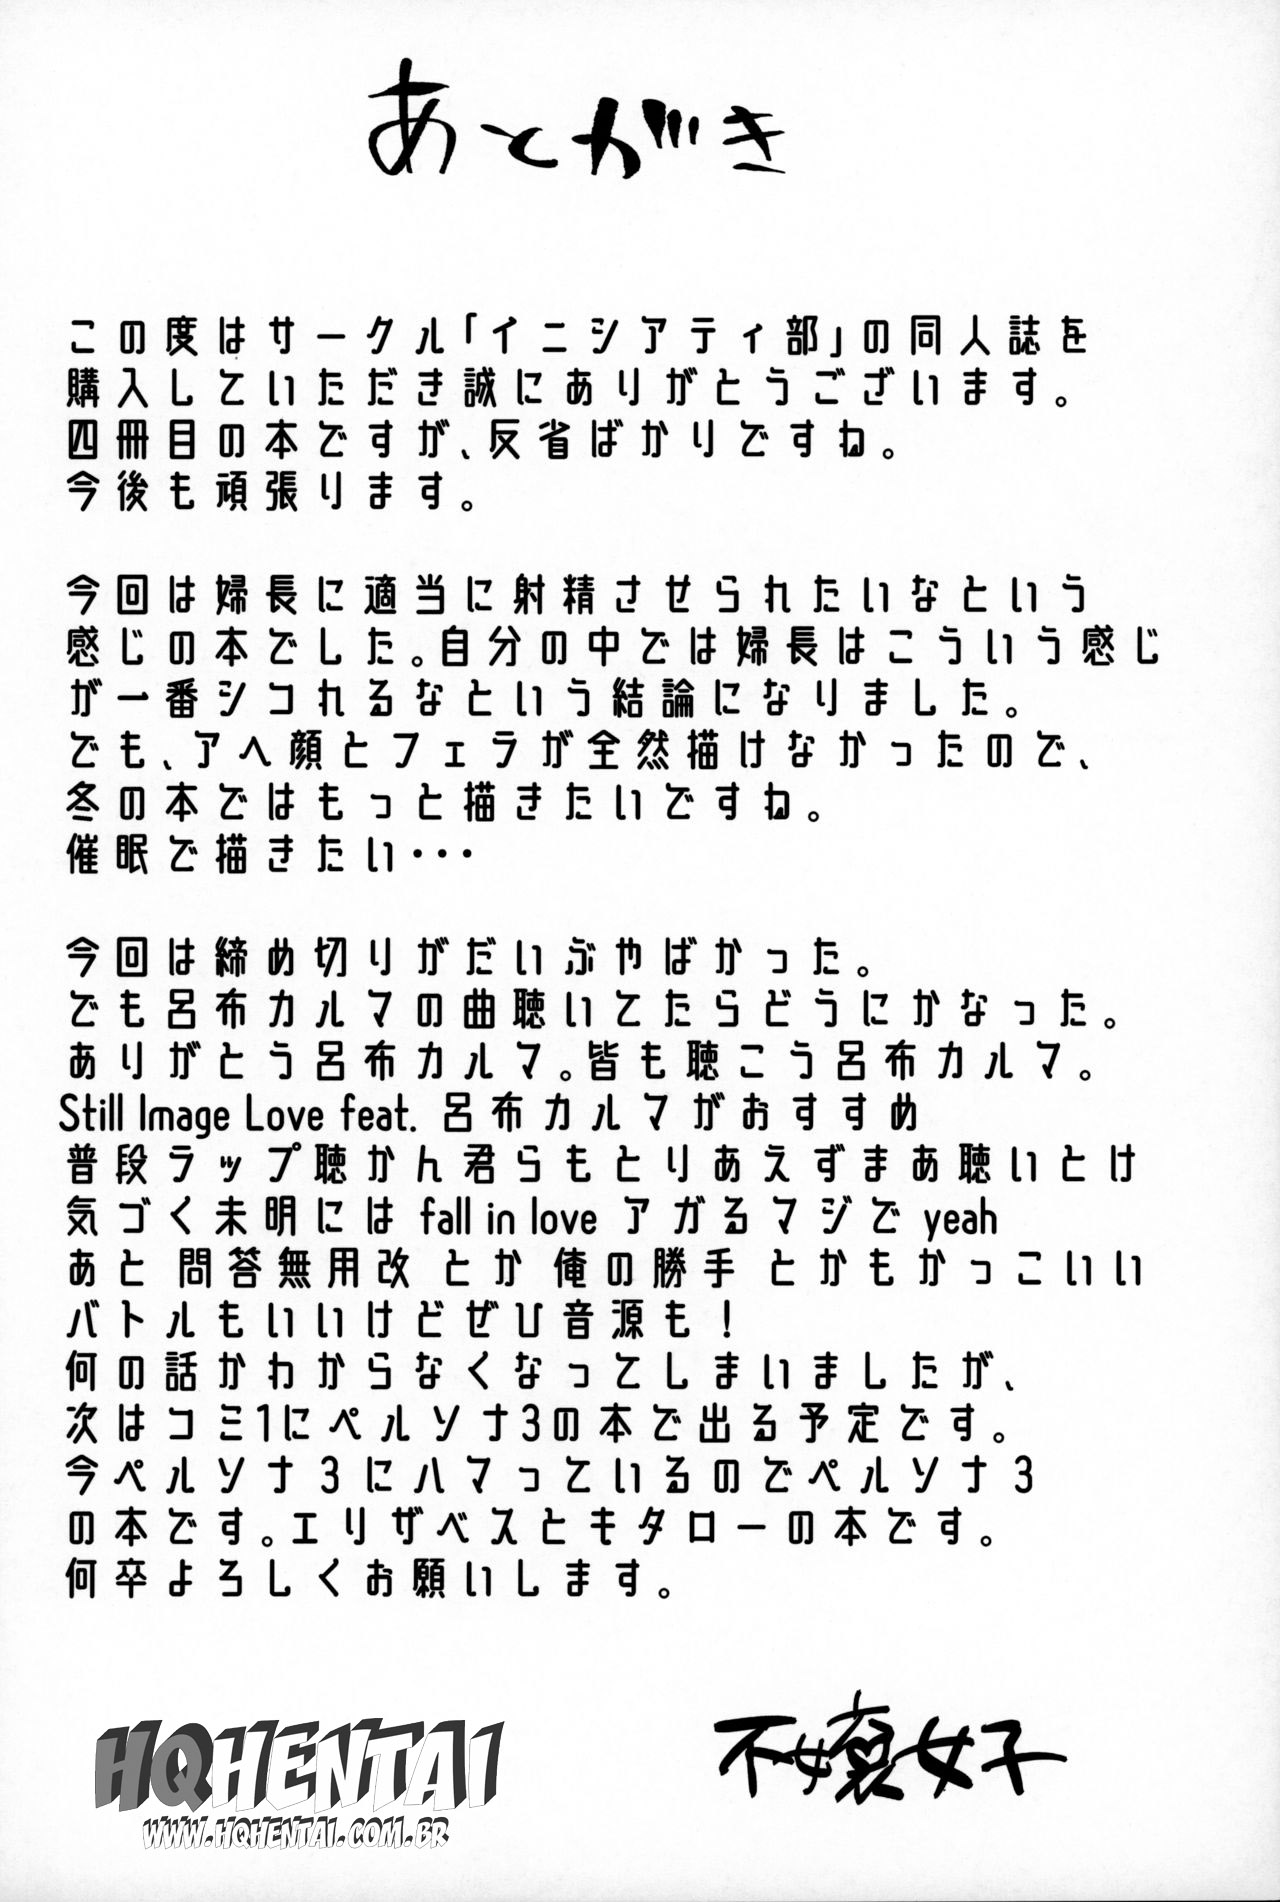 あとがき
この度はサークル「イニシアティ部」の同人誌を
購入していただき誠にありがとうございます。
四冊目の本ですが、反省ばかりですね。
今後も頑張ります。
今回は婦長に適当に射精させられたいなという
感じの本でした。自分の中では婦長はこういう感じ
が一番シコれるなという結論になりました。
でも、アヘ顔とフェラが全然描けなかったので、
冬の本ではもっと描きたいですね。
催眠で描きたい・・・
今回は締め切りがだいぶやばかった。
でも呂布カルマの曲聴いてたらどうにかなった。
ありがとう呂布カルマ。皆も聴こう呂布カルマ。
Still Image Love feat. 呂布カルマがおすすめ
普段ラップ聴かん君らもとりあえずまあ聴いとけ
気づく未明には fall in love アガるマジで yeah
あと 問答無用改 とか 俺の勝手 とかもかっこいい
バトルもいいけどぜひ音源も!
何の話かわからなくなってしまいましたが、
次はコミ1にペルソナ3の本で出る予定です。
今ペルソナ3にハマっているのでペルソナ3
の本です。エリザベスともキタローの本です。
何卒よろしくお願いします。
不嬢女子
HQHENTAI
WWW.HQHENTAI.COM.BR